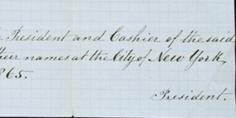 President and Cashier of the said
their names at the City of New York,
865.
President.